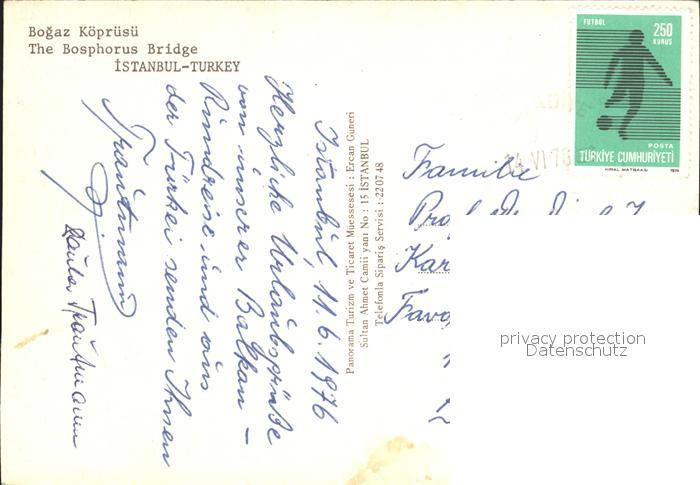 Boğaz Köprüsü
The Bosphorus Bridge
İSTANBUL-TURKEY
Istanbul, 11.6.1976
Herzliche Urlaubsgrüße
von unserer Balkan-
Rundreise und aus
der Türkei senden Ihnen
Trautmann
Trautmann
Panorama Turizm ve Ticaret Müessesesi : Ercan Güneri
Sultan Ahmet Camii yanı No : 15 İSTANBUL
Telefonla Sipariş Servisi : 220748
FUTBOL
250
KURUŞ
POSTA
TÜRKİYE CUMHURİYETİ
VI 76
Familie
Kar
Favo
privacy protection
Datenschutz